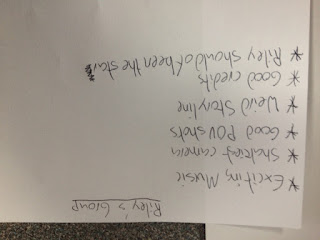 Riley's Group
* Exciting Music
* Shakiest camera
* Good POV shots
* Weird Story line
* Good credits
* Riley should of been the star